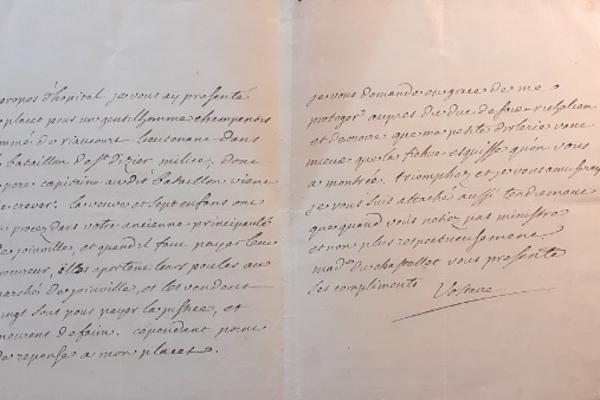 propos d'hopital je vous ay presenté
placet pour un gentilhomme champenois
de Lieutenant dans
bataillon de st dizier milice, dont
pere capitaine audit Bataillon vient
de crever. la veuve et sept enfans ont
procez dans votre ancienne principauté
de joinville, et quand il faut payer leur
procureur, ils aportent leurs poules au
marché de joinville, et les vendent
vingt sous pour payer la justice, et
meurent de faim. cependant point
de reponse a mon placet.
je vous demande en grace de me
proteger aupres du duc de
et de croire que ma petite drolerie vaut
mieux que la fichue esquisse qu'on vous
a montrée. triomphez et je vous amuseray
je vous suis attaché aussi tendrement
que quand vous netiez pas ministre
et non plus respectueusement
mad.e du chastellet vous presente
ses compliments Voltaire